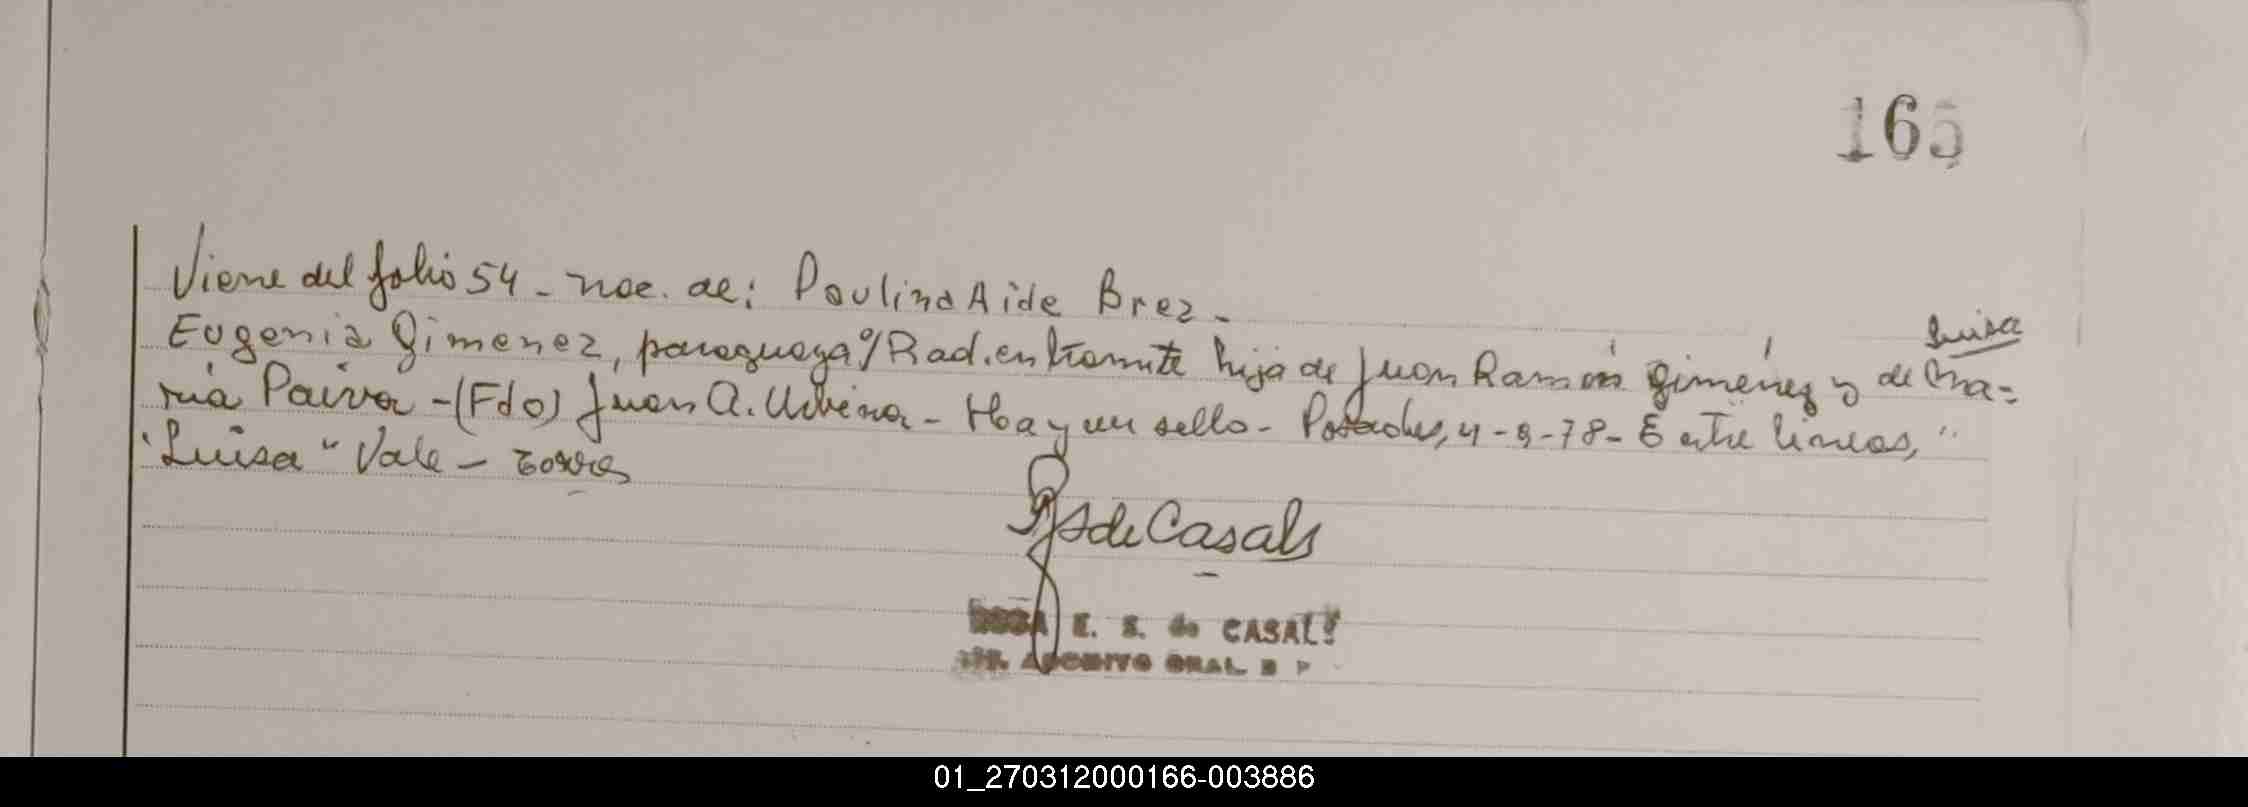 165
Viene del folio 54 - nac. de: Paulina Aide Brez -
Luisa
Eugenia Gimenez, paraguaya c/Rad. en tramite hija de Juan Ramón Giménez y de Ma=
ria Paiva - (Fdo) Juan A. - Hay un sello - Posadas, 4-9-78 - Entre lineas, "
"Luisa" Vale - Torres
de Casals
ROSA E. S. de CASALS
ARCHIVO GRAL.
01_270312000166-003886